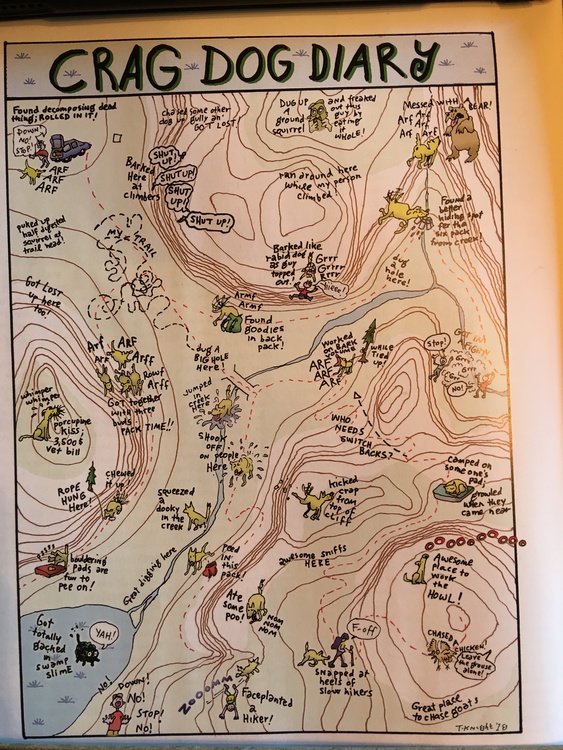 CRAG DOG DIARY
Found decomposing dead
thing; ROLLED IN IT!
DOWN!
NO!
STOP!
ARF
ARF
ARF
chased some other
dog in gully an'
GOT LOST
DUG UP
a
ground
squirrel
and freaked
out this
guy by
eating
it
WHOLE!
Messed WITH A BEAR!
Arf Arf
Arf Arf
Arf Arf
Barked
Here
at
climbers
SHUT
UP!
SHUT UP!
SHUT
UP!
SHUT UP!
ran around here
while my person
climbed!
Found a
better
hiding spot
for the
six pack
from creek!
puked up
half digested
squirrel at
trail head!
MY TRAIL
Barked like
rabid dog
as guy
topped
out.
Grrr
Grrrr
Grrr
dug
a
hole
here!
Got Lost
up here
too!
Armf
Armf
Found
goodies
in back
pack!
dug a
BIG HOLE
Here!
Worked
on BARK
VOLUME
WHILE
TIED
UP!
ARF
ARF
ARF
Stop!
Grr
Grr
NO!
Arf
ARF
Arf
Arff
Rowf
Arff
GOT together
with three
buds
PACK TIME!!
jumped
in creek
Here
whimper
whimper
porcupine
kiss;
3,500$
Vet bill
SHOOK
OFF
on people
Here
WHO
NEEDS
SWITCH
BACKS?
ROPE
HUNG
Here!
CHEWED
it up
squeezed
a
dooky
in the
creek
kicked
crap
from
top of
cliff
camped on
someone's
pad;
growled
when they
came near
bouldering
pads are
fun to
pee on!
Great digging here
PEED
IN
this
pack!
awesome sniffs
HERE
Awesome
place to
work
the
HOWL!
Ate
some
poo!
NOM
NOM
NOM
Got
totally
Backed
in
swamp
slime
YAH!
F-off
SNAPPED at
heels of
slow hikers
CHASED
CHICKEN!
Leave
the grouse
alone!
NO!
DOWN!
NO!
STOP!
NO!
ZOOOMM
Faceplanted
a
Hiker!
Great place
to chase goats
T.KNIGHT '18